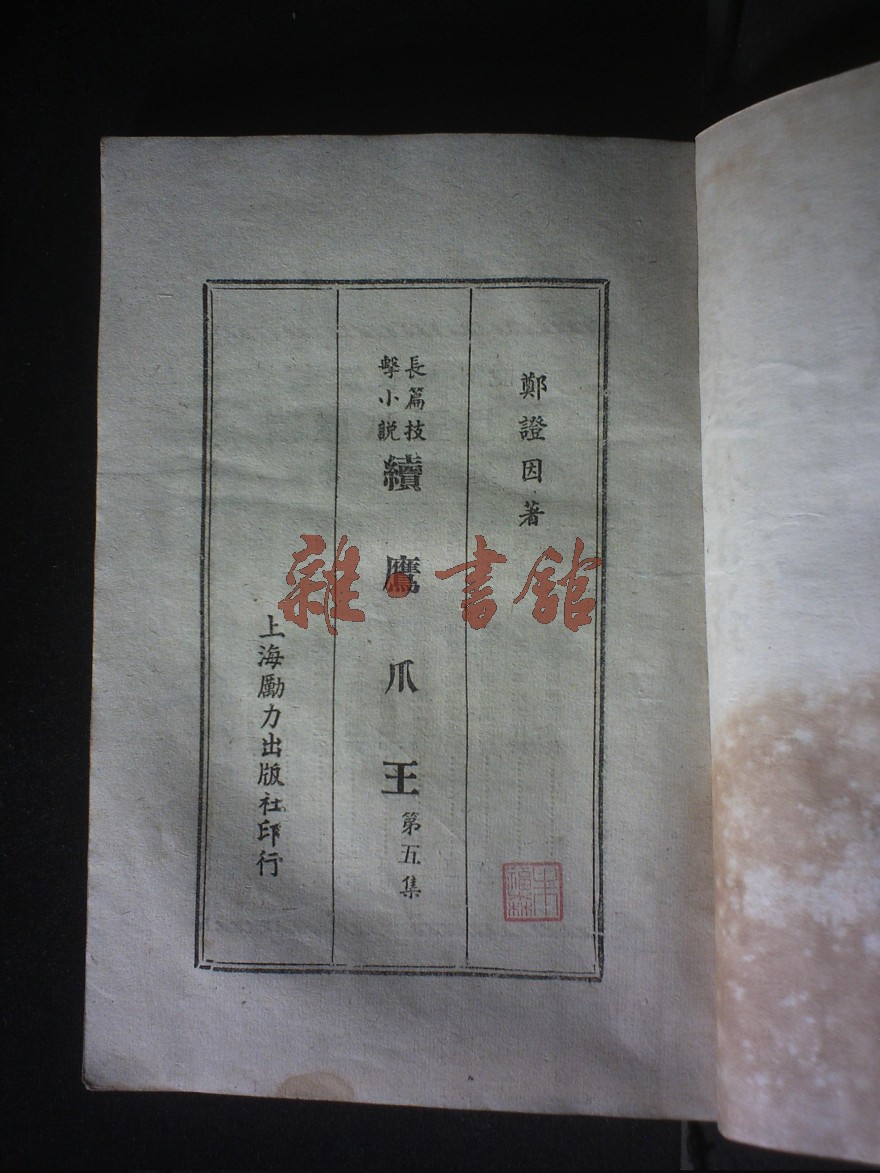 鄭證因著
長篇技
擊小説
續鷹爪王
第五集
上海勵力出版社印行
雜·書館